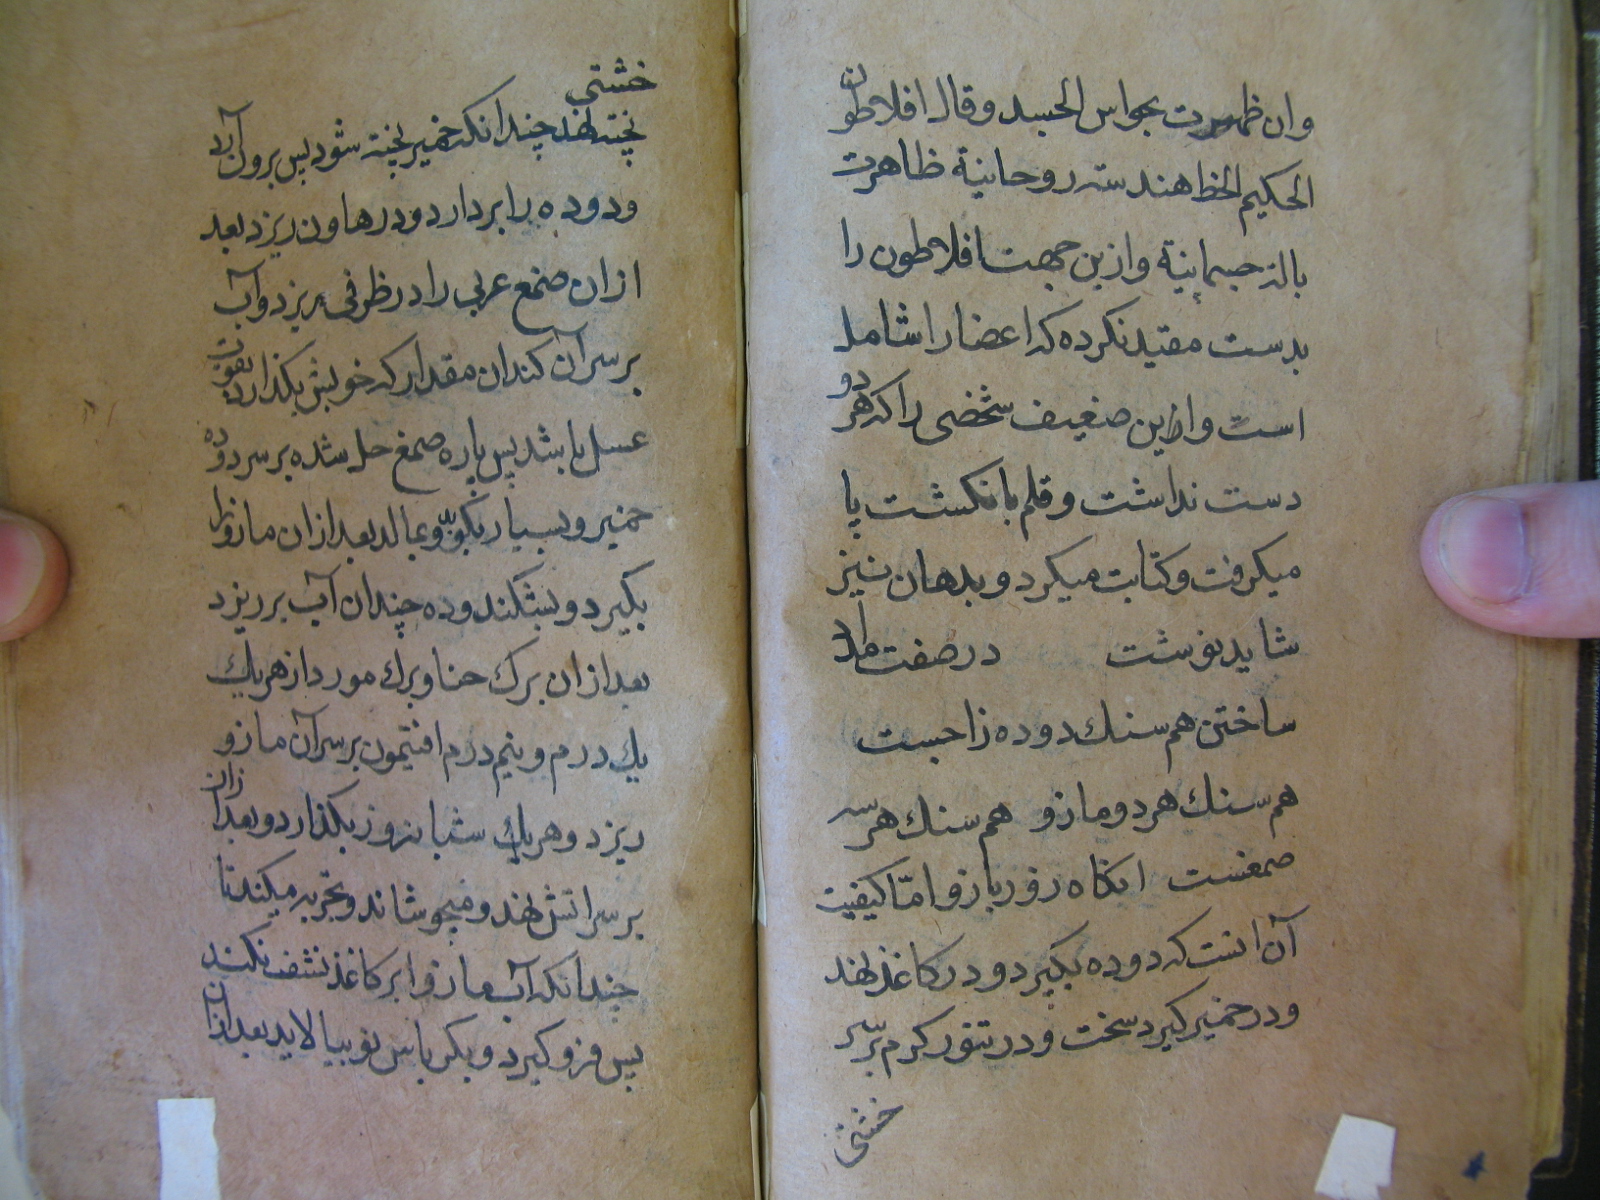 وان ظهرت بجواس الجسد وقال افلاطون
الحكيم الخط هندسته روحانية ظاهرت
بالة جسمانية وازين جهت افلاطون را
بدست مقيد نكرده كه اعضا را شامل
است وازين صنعيف شخصى را كه هر دو
دست نداشت و قلم بانكشت پا
ميكرفت وكتابت ميكرد و بدهان نيز
شايد نوشت در صفت مداد
ساختن هم سنك دوده زاجست
هم سنك هر دو مازو هم سنك هر سه
صمغست انكاه زور بازو امّا كيفيت
آن انست كه دوده بكيرد و در كاغذ نهد
و در خمير كيرد سخت و در تنور كرم بر سر
خشتى
خشتى
پخته نهد چندانكه خمير پخته شود پس برون آرد
و دوده را بردارد و در هاون ريزد بعد
ازان صمغ عربى را در ظرفى ريزد و آب
بر سر آن كند ان مقدار كه خويش بكدازد بقوت
عسل باشد پس پاره صمغ حل شده بر سر دوده
خمير و بسيار بكوبد وبمالد بعد ازان مازو را
بكيرد و بشكند و ده چندان آب بر ريزد
بعد ازان برك حنا و برك مورد از هر يك
يك درم و نيم درم افتيمون بر سر آن مازو
ريزد و هر يك شبانروز بكذارد و بعد ازان
بر سر اتش نهد و ميجوشاند و تجربه ميكند تا
چندانكه آب مازو ابر كاغذ نشف نكند
پس فرو كيرد و بكرباس نو بپالايد بعد ازان